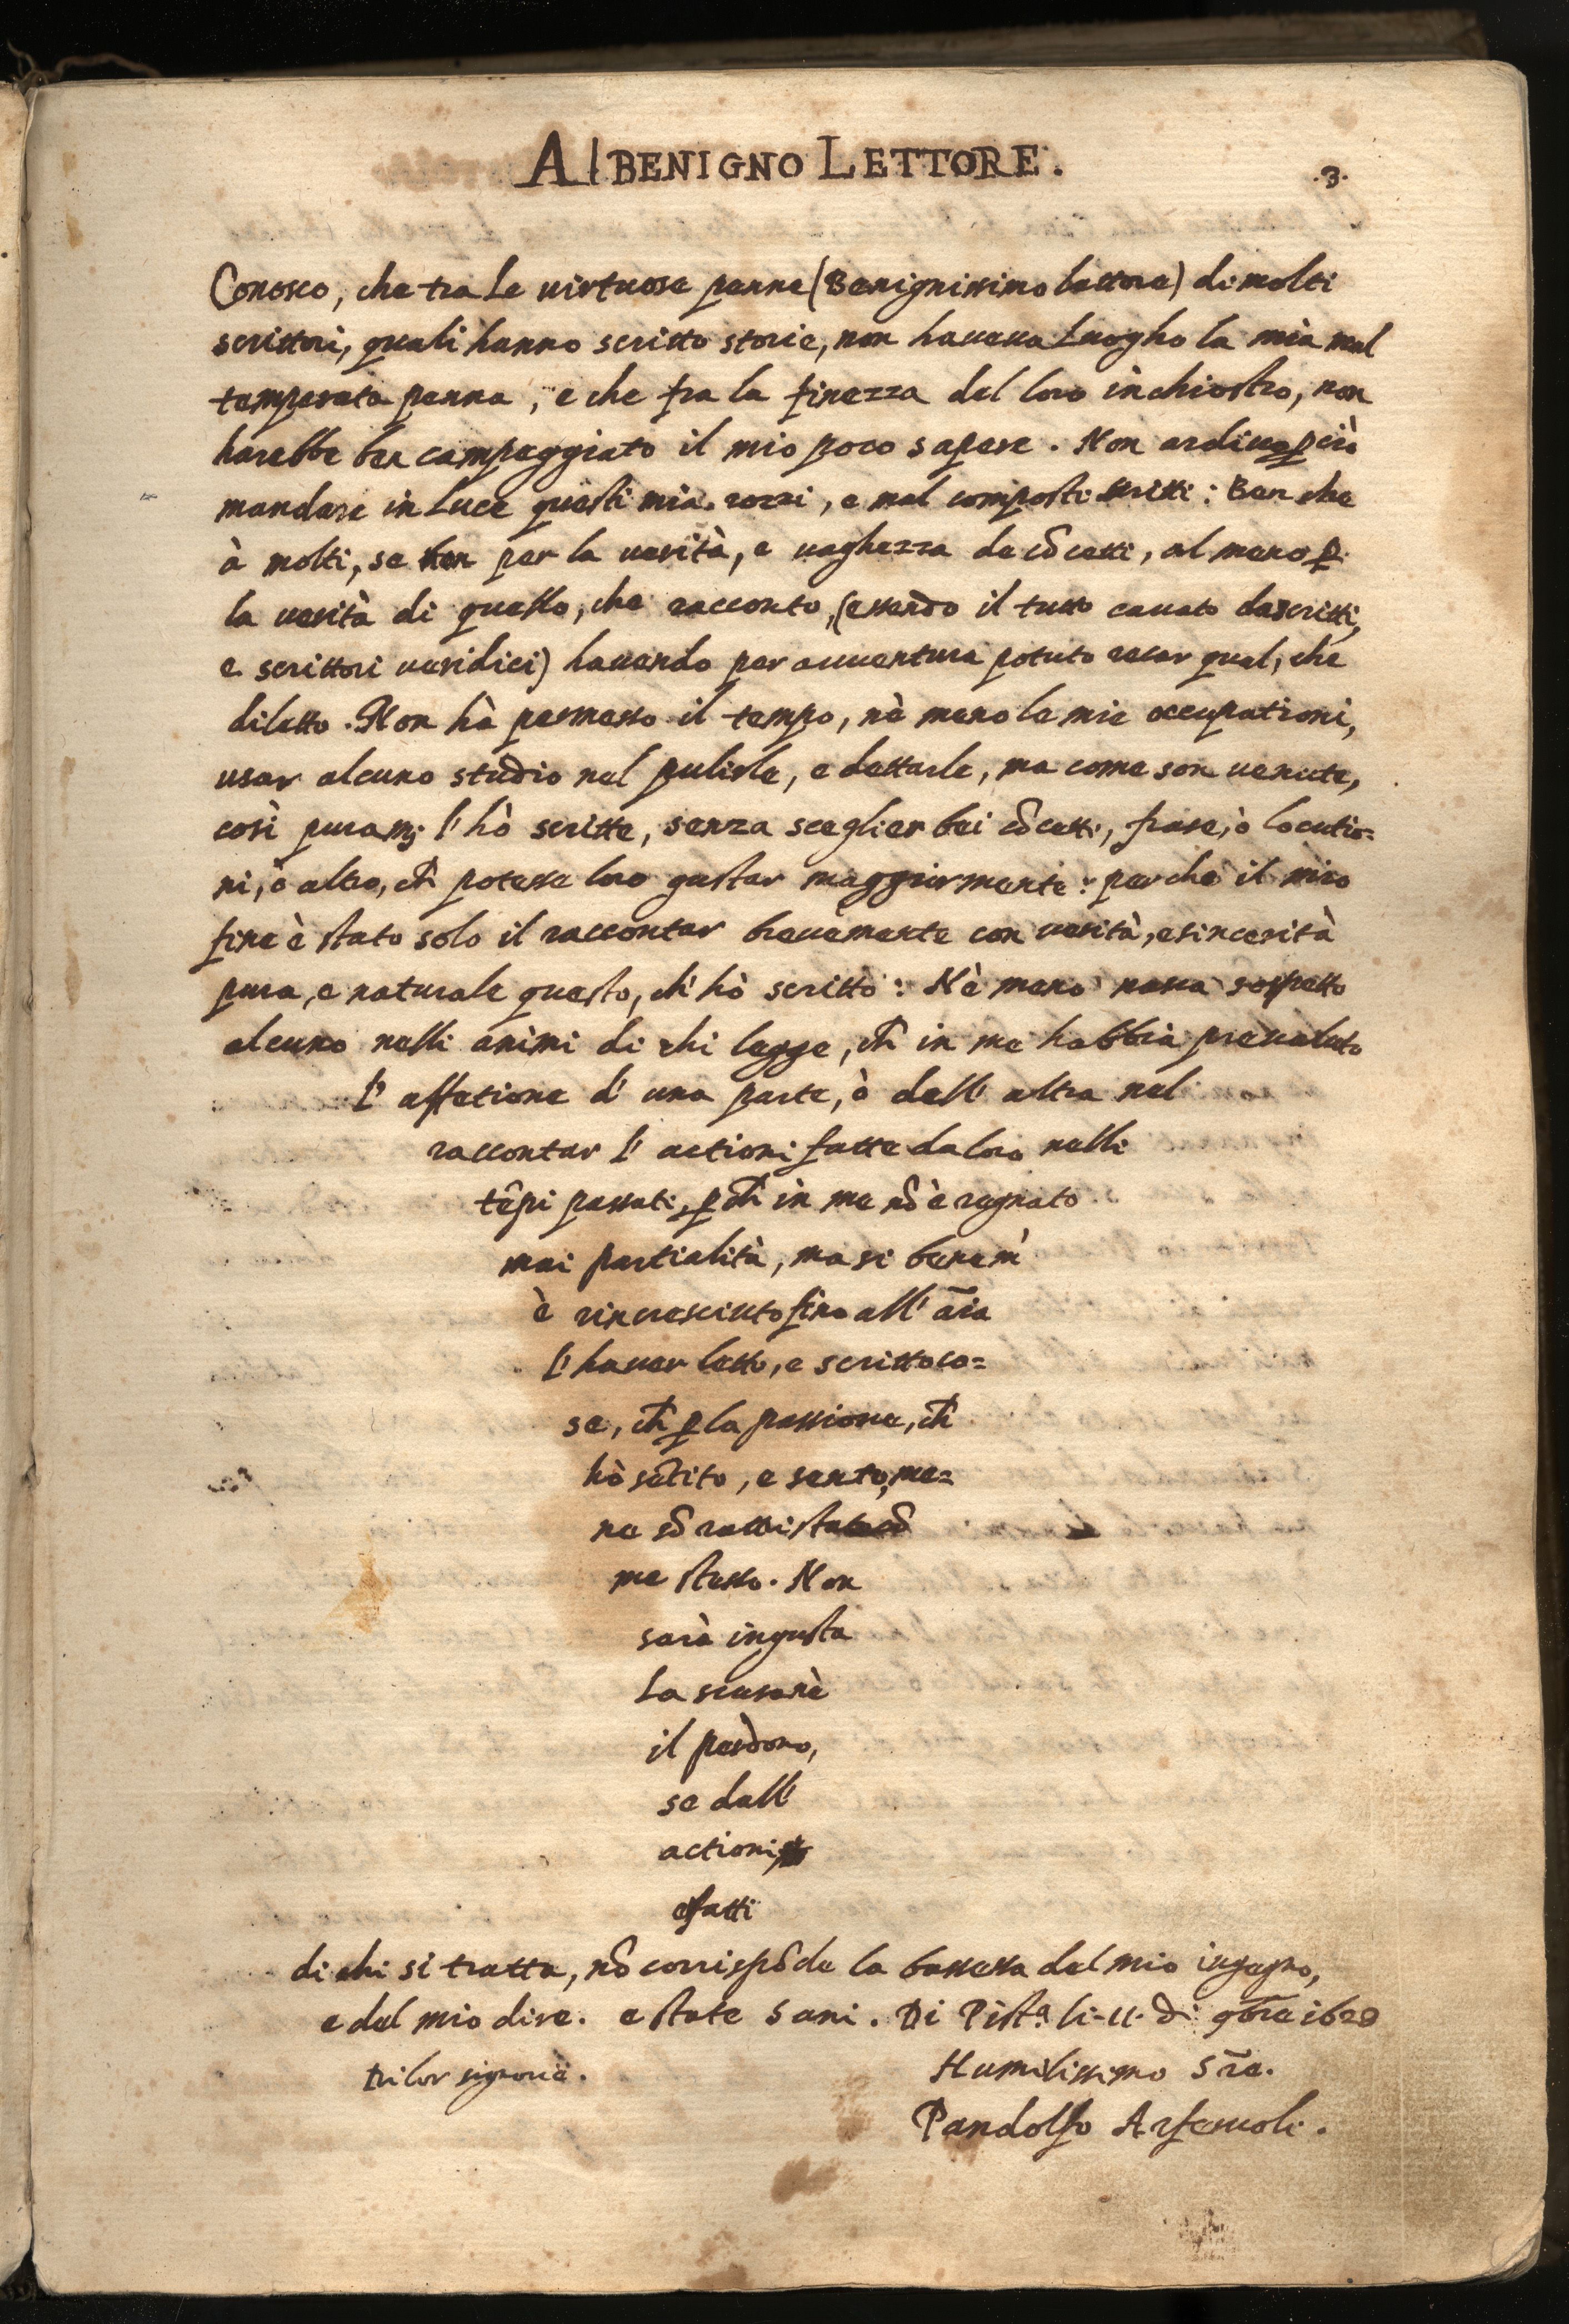 Al BENIGNO LETTORE.
.3.
Conosco, che tra Le virtuose penne (Benignissimo lettore) di molti
scrittori, quali hanno scritto storie, non haveva Luogho la mia mal
temperata penna, e che fra la finezza del loro inchiostro, non
harebbe ben campeggiato il mio poco sapere. Non ardivo p̱ciò
mandare in Luce questi mia rozzi, e mal composti scritti: Ben che
à molti, se non per la verità, e vaghezza de cõcetti, al meno p̱
la verità di quello, che racconto, (essendo il tutto cavato da scritti,
e scrittori veridici) havendo per avventura potuto recar qual, che
diletto. Non hà permesso il tempo, nè meno le mie occupationi,
usar alcuno studio nel pulirle, e dettarle, ma come son venute,
così puram; l'hò scritte, senza sceglier bei cõcetti, frase, ò locutio=
ni, ò altro, ch̃ potesse loro gustar maggiormente: perche il mio
fine è stato solo il raccontar brevemente con verità, e sincerità
pura, e naturale questo, ch'hò scritto: Nè meno nasca sospetto
alcuno nelli animi di chi legge, ch̃ in me habbia prevaluto
l'affetione d'una parte, ò dell'altra nel
raccontar l'actioni fatte da loro nelli
tẽpi passati, p̱ch̃ in me nõ è regnato
mai partialità, ma si bene m'
è rincresciuto fino all'ãia
l'haver letto, e scritto co=
se, ch̃ p̱ la passione, ch̃
hò sẽtito, e sento, me=
ne sõ rattristato cõ
me stesso. Non
sarà ingiusta
La scusa nè
il perdono,
se dall'
actioni
e fatti
di chi si tratta, nõ corrispõde la bassezza del mio ingegno,
e del mio dire. e state sani. Di Pist.ª li-11. di 9bre 1628
Di lor signorie.
Humilissimo Sre.
Pandolfo Arferuoli.